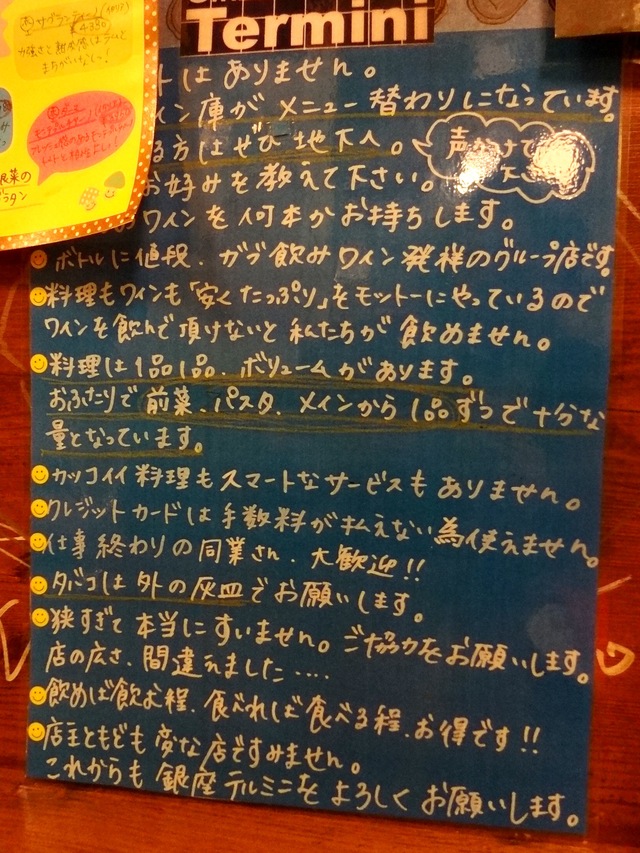 Termini
トはありません。
イン庫がメニュー替わりになっています。
る方はぜひ地下へ。
声かけて
お好みを教えて下さい。
おワインを何本かお持ちします。
ボトルに値段、ガブ飲みワイン発祥のグループ店です。
料理もワインも「安くたっぷり」をモットーにやっているので
ワインを飲んで頂けないと私たちが飲めません。
料理は1品1品、ボリュームがあります。
おふたりで前菜、パスタ、メインから1品ずつで十分な
量となっています。
カッコイイ料理もスマートなサービスもありません。
クレジットカードは手数料が払えない為使えません。
仕事終わりの同業さん、大歓迎!!
タバコは外の灰皿でお願いします。
狭すぎて本当にすいません。ご協力をお願いします。
店の広さ、間違えました・・・・・
飲めば飲む程、食べれば食べる程、お得です!!
店主ともども変な店ですみません。
これからも銀座テルミニをよろしくお願いします。